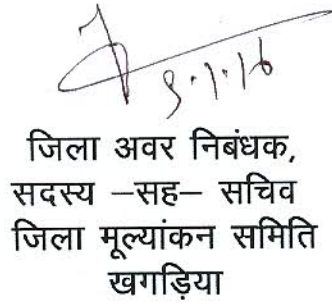 जिला अवर निबंधक,
सदस्य –सह– सचिव
जिला मूल्यांकन समिति
खगड़िया